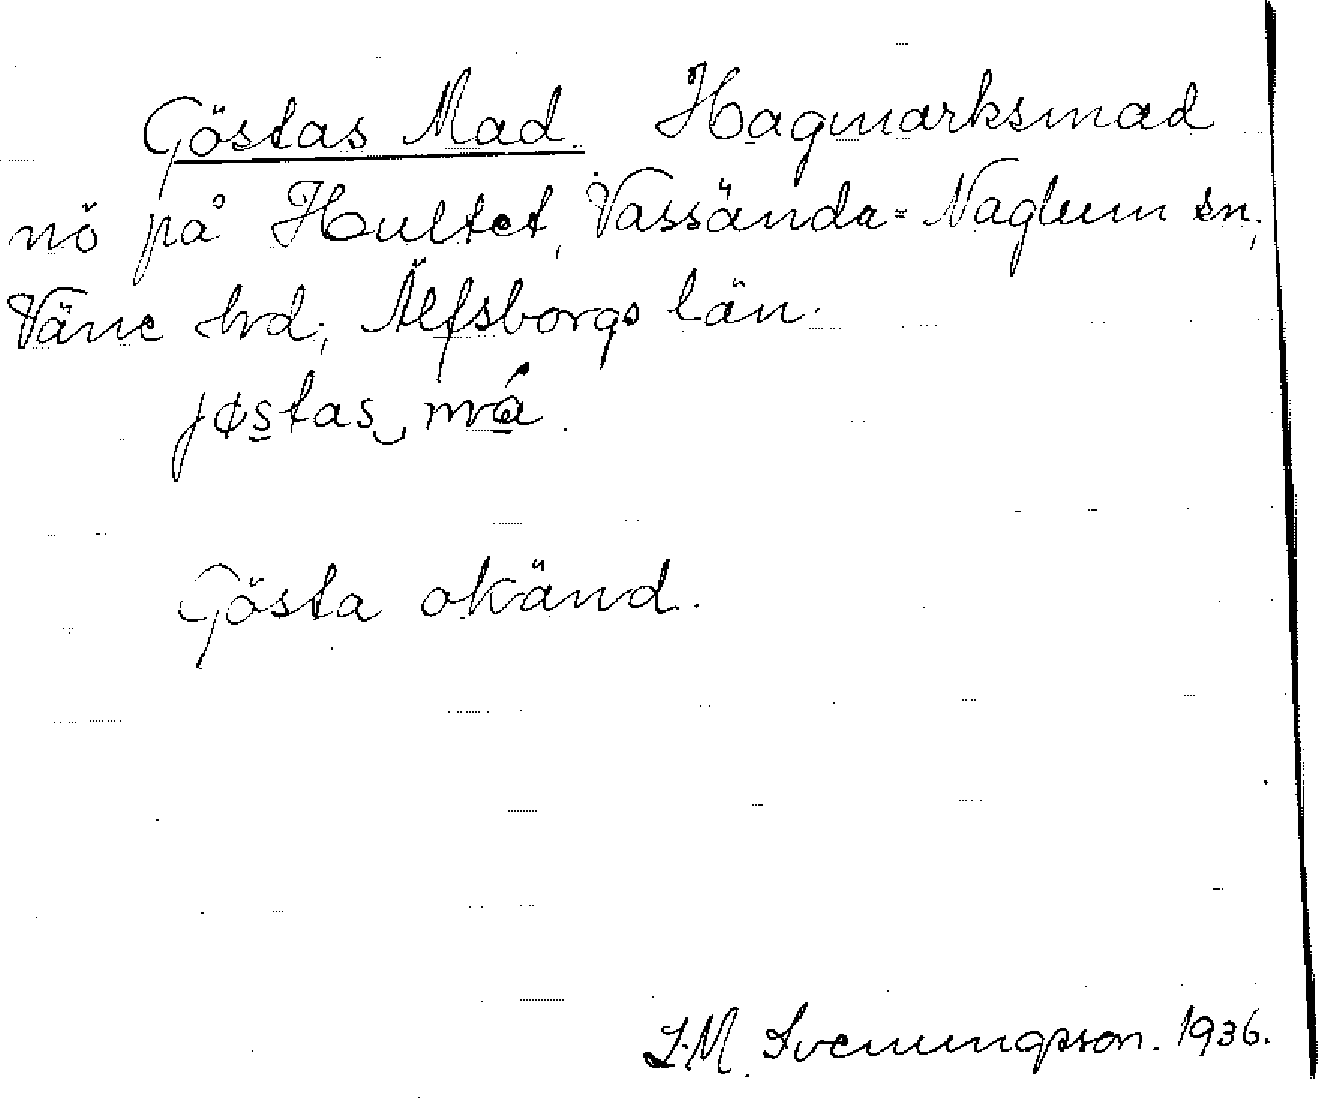 Göstas Mad. Hagmarksmad
nö på Hultet, Vassända-Naglum sn,
Väne hd, Älfsborgs län.
jøstas má.
Gösta okänd.
J.M. Svenungsson. 1936.